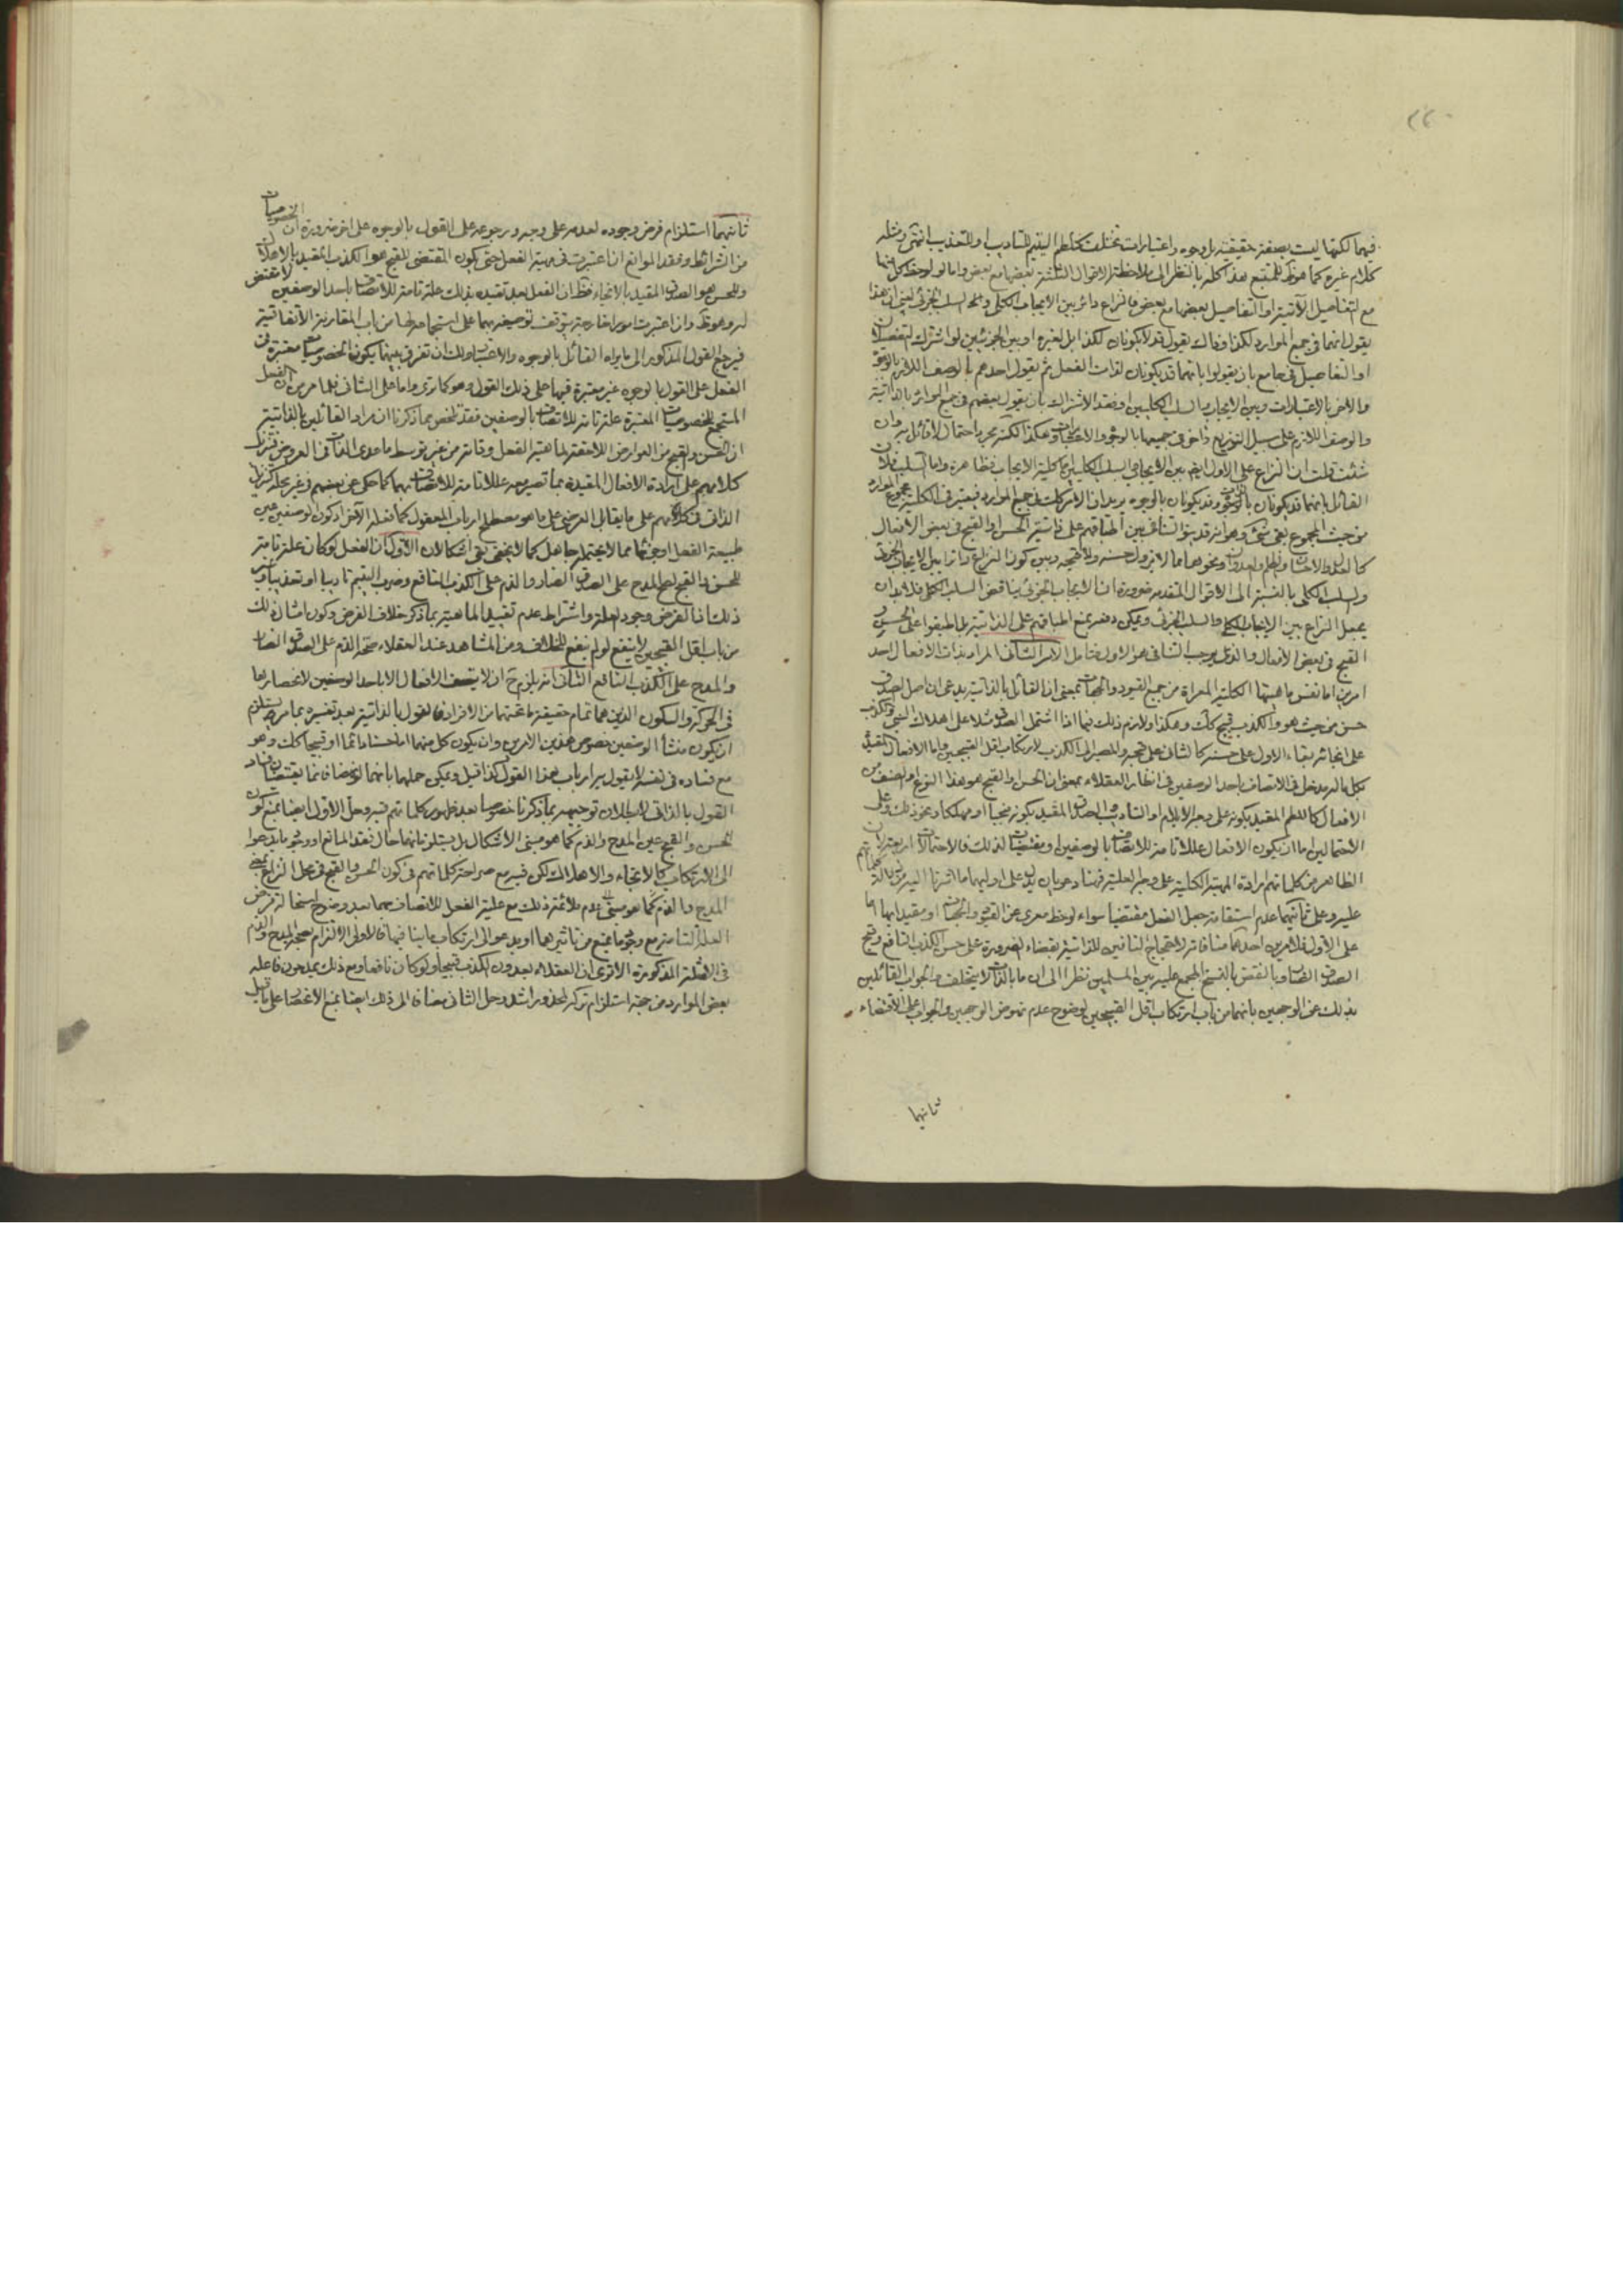 ٢٢٠
فيهما لكنها ليست بصفة حقيقية بل وجوه واعتبارات تختلف كلطم اليتيم للتاديب او للتعذيب انتهى ومثله
كلام غيره كما هو للمتتبع هذا كله بالنظر الى ملاحظة الاقوال الثلثة بعضها مع بعض واما لو لوحظ كل منها
مع التفاصيل الآتية او التفاصيل بعضها مع بعض فالنزاع دائر بين الايجاب الكلى والسلب الجزئى لان هذا
يقول انهما فى جميع الموارد لكذا وذاك يقول قد لا يكونان لكذا بل لغيره او بين الجزئيين لو اشترك التفصيلان
او التفاصيل فى جامع بان يقولوا بانهما قد يكونان لذات الفعل ثم يقول احدهم بالوصف اللازم
والاخر بالاعتبارات وبين الايجاب والسلب الكليين لو فقد الاشتراك بان يقول بعضهم فى جميع الموارد بالذاتية
والوصف اللازم على سبيل التوزيع واخر فى جميعها بالوجوه والاعتبارات وهكذا لكنه مجرد احتمال لا قائل به وان
شئت قلت ان النزاع على الاول ايضا بين الايجاب والسلب الكليين اما كلية الايجاب فظاهرة واما السلب فلان
القائل بانهما قد يكونان وقد يكونان بالوجوه يريد ان الاشتراك فى جميع الموارد فيعتبر فى الكلية مجموع الموارد
من حيث المجموع بقى شئ وهو انه قد يتوهم التنافى بين اطباقهم على ذاتية الحسن او القبح فى بعض الافعال
كالعدل والاحسان والظلم والعدوان ونحوهما مما لا يزول حسنه ولا قبحه وبين كون النزاع دائرا بين الايجاب الجزئى
والسلب الكلى بالنسبة الى الاقوال المتقدمة ضرورة ان الايجاب الجزئى يناقض السلب الكلى فلا بد ان
يجعل النزاع بين الايجاب الكلى والسلب الجزئى ويمكن دفعه بمنع اطباقهم على الذاتية بل اطبقوا على الحسن و
القبح فى بعض الافعال والذى يوجب التنافى هو الاول فتامل الامر الثانى المراد بذات الافعال احد
امرين اما نفس ماهيتها الكلية المعراة من جميع القيود والجهات بمعنى ان القائل بالذاتية يدعى ان اصل الصدق
حسن من حيث هو والكذب قبيح كذلك وهكذا ولازم ذلك فيما اذا اشتمل الصدق مثلا على اهلاك النبى والكذب
على انجائه بقاء الاول على حسنه كالثانى على قبحه والمصير الى الكذب لارتكاب اقل القبيحين واما الافعال المقيدة
بكل ما له مدخل فى الاتصاف باحد الوصفين فى انظار العقلاء بمعنى ان الحسن او القبيح هو هذا النوع او الصنف من
الافعال كاللطم المقيد بكونه على وجه الايلام او التاديب والصدق المقيد بكونه منجيا او مهلكا ونحو ذلك وعلى
الاحتمالين اما ان يكون الافعال عللا تامة للاتصاف بالوصفين او مقتضيات لذلك فالاحتمالات اربعة
الظاهر من كلماتهم ارادة المهية الكلية على وجه العلية فهنا دعويان يدل على اوليهما ما اشرنا اليه
عليه وعلى ثانيتهما عدم استقامة جعل الفعل مقتضيا سواء لوحظ معرى عن القيود والجهات او مقيدا بها اما
على الاول فلامرين احدهما منافاته لاحتجاج النافين للذاتية بقضاء الضرورة على حسن الكذب النافع وقبح
الصدق الضار وبالنقض بالنسخ المجمع عليه بين المسلمين نظرا الى ان ما بالذات لا يتخلف ولجواب القائلين
بذلك عن الوجهين بانهما من باب ارتكاب اقل القبيحين لوضوح عدم نهوض الوجهين والجواب على الاقتضاء
ثانيهما
ثانيهما استلزام فرض وجوده لعدمه على وجه ورجوعه على القول بالوجوه على اخر ضرورة ان الخصوصيات
من الشرائط وفقد الموانع ان اعتبرت فى مهية الفعل حتى يكون المقتضى للقبح هو الكذب المقيد بالاهلاك
وللحسن هو الصدق المقيد بالانجاء فظ ان الفعل بعد تقييده بذلك علة تامة للاتصاف باحد الوصفين لا مقتض
له وهو وان اعتبرت امورا خارجة يتوقف توصيفه بهما على استجماعه لها من باب المقارنة الاتفاقية
فيرجع القول المذكور الى ما يراه القائل بالوجوه والاعتبارات ولك ان تفرق بينهما بكون الخصوصيات معتبرة فى
الفعل على القول بالوجوه غير معتبرة فيها على ذلك القول وهو كما ترى واما على الثانى فلما مر من ان الفعل
المستجمع للخصوصيات المعتبرة علة تامة للاتصاف بالوصفين فقد تلخص بما ذكرنا ان مراد القائلين بالذاتية
ان الحسن والقبح من العوارض اللاحقة لماهية الفعل وذاته من غير توسط ما عدى الذات فى العروض فتنزيل
كلامهم على ارادة الافعال المقيدة بما تصير معه عللا تامة للاتصاف بهما كما حكى عن بعضهم فى غير محله كتنزيل
الذاتى فى كلامهم على ما يقابل العرضى على ما هو مصطلح ارباب المعقول كما فعله الآخر او كون الوصفين عين
طبيعة الفعل او جزئها مما لا يحتمله جاهل كما لا يخفى بقى اشكالان الاول ان الفعل لو كان علة تامة
للحسن والقبح لصح المدح على الصدق الضار والذم على الكذب النافع وضرب اليتيم تاديبا او تعذيبا وغير
ذلك اذ الفرض وجود العلة واشتراط عدم تقييد الماهية بما ذكر خلاف الفرض وكون امثال ذلك
من باب اقل القبيحين لا ينفع لو لم ينفع للخلاف ومن المشاهد عند العقلاء صحة الذم على الصدق الضار
والمدح على الكذب النافع الثانى انه يلزم ح ان لا يتصف الافعال الا باحد الوصفين لانحصارها
فى الحركة والسكون الذين هما تمام حقيقة ما تحتهما من الافراد فالقول بالذاتية بعد تفسيره بما مر يستلزم
ان يكون منشأ الوصفين خصوص هذين الامرين وان يكون كل منهما اما حسنا دائما او قبيحا كذلك وهو
مع فساده فى نفسه لا يقول به ارباب هذا القول كذا قيل ويمكن حلهما بانهما لو نهضا فانما يقتضيان فساد
القول بالذاتى لا بطلان توجيهه بما ذكرنا خصوصا بعد ظهور كلماتهم فيه وحل الاول ايضا بمنع كون
الحسن والقبح عين المدح والذم كما هو مبنى الاشكال بل يستلزمانهما حال فقد المانع او
الى الارتكاب كالانجاء والاهلاك لكن فيه مع صراحة كلماتهم فى كون الحسن والقبح فى محل النزاع بمعنى
المدح والذم كما هو مبنى عدم ملائمة ذلك مع علية الفعل للاتصاف بهما بعد وضوح استحالة فرض
العلة التامة مع وجود ما يمنع من تاثيرهما او يدعو الى ارتكاب ما ينافيهما فالاولى الالتزام بصحة المدح والذم
فى الامثلة المذكورة الا ترى ان العقلاء يعدون الكذب قبيحا ولو كان نافعا ومع ذلك يمدحون فاعله
بعض الموارد من جهة استلزام تركه لمحذور اشد وحل الثانى مضافا الى ذلك ايضا بمنع الانحصار على ما قيل